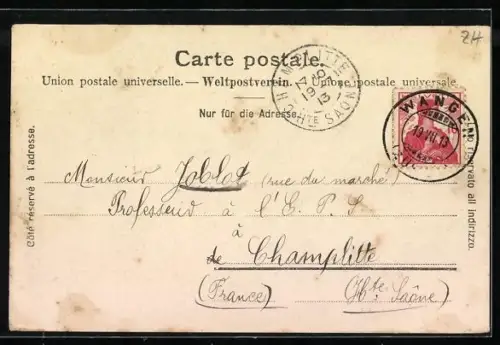 24
Carte postale.
Union postale universelle. — Weltpostverein. — Unione postale universale
Nur für die Adresse.
CHAMPLITTE
HTE SAONE
13
WANGEN
19 VII 13
Côté réservé à l'adresse.
Lato riservato all'indirizzo.
Monsieur Joblot (rue du marché)
Professeur à l'E.P.S
à
de Champlitte
(France) (Hte Saône)